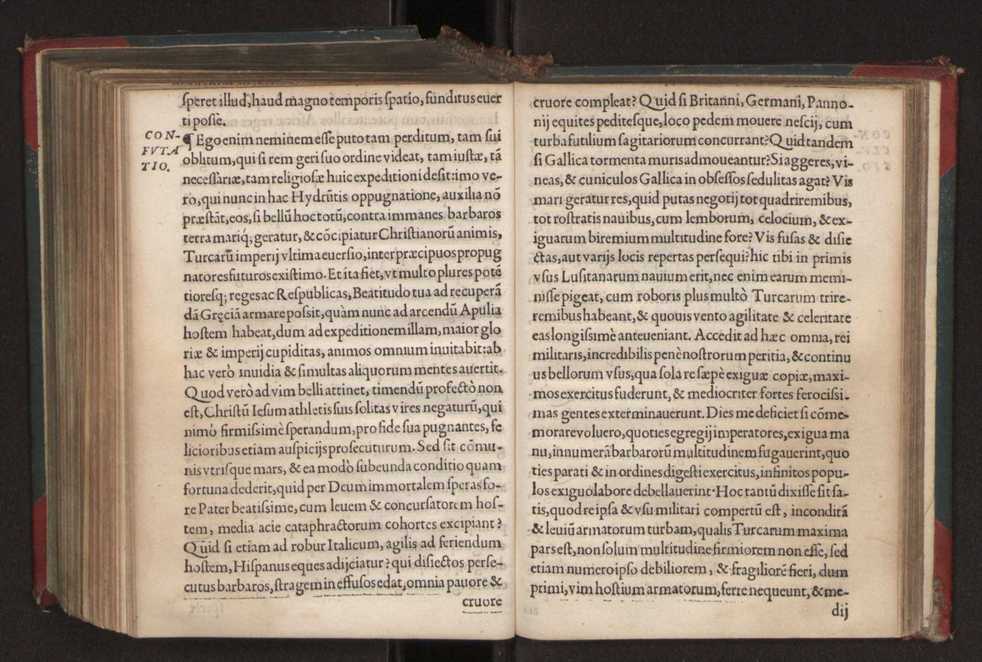 speret illud, haud magno temporis spatio, funditus euer
ti posse.
CON-
FVTA
TIO.
¶ Ego enim neminem esse puto tam perditum, tam sui
oblitum, qui si rem geri suo ordine videat, tam iustæ, tã
necessariæ, tam religiosæ huic expeditioni desit: imo ve-
ro, qui nunc in hac Hydrũtis oppugnatione, auxilia nõ
præstãt, eos, si bellũ hoc totũ, contra immanes barbaros
terra mariq́; geratur, & cõcipiatur Christianorũ animis,
Turcarũ imperij vltima euersio, inter præcipuos propug
natores futuros existimo. Et ita fiet, vt multo plures potẽ
tioresq; reges ac Respublicas, Beatitudo tua ad recuperã
dã Gręciã armare possit, quàm nunc ad arcendũ Apulia
hostem habeat, dum ad expeditionem illam, maior glo
riæ & imperij cupiditas, animos omnium inuitabit: ab
hac verò inuidia & simultas aliquorum mentes auertit.
Quod verò ad vim belli attinet, timendũ profectò non
est, Christũ Iesum athletis suis solitas vires negaturũ, qui
nimò firmissimè sperandum, pro fide sua pugnantes, fe
licioribus etiam auspicijs prosecuturum. Sed sit cõmu-
nis vtrisque mars, & ea modò subeunda conditio quam
fortuna dederit, quid per Deum immortalem speras fo-
re Pater beatissime, cum leuem & concursatorem hos-
tem, media acie cataphractorum cohortes excipiant?
Quid si etiam ad robur Italicum, agilis ad feriendum
hostem, Hispanus eques adijciatur? qui disiectos perse-
cutus barbaros, stragem in effusos edat, omnia pauore &
cruore
cruore compleat? Quid si Britanni, Germani, Panno-
nij equites peditesque, loco pedem mouere nescij, cum
turba futilium sagitariorum concurrant? Quid tandem
si Gallica tormenta muris admoueantur? Si aggeres, vi-
neas, & cuniculos Gallica in obsessos sedulitas agat? Vis
mari geratur res, quid putas negotij tot quadriremibus,
tot rostratis nauibus, cum lemborum, celocium, & ex-
iguarum biremium multitudine fore? Vis fusas & disie
ctas, aut varijs locis repertas persequi? hic tibi in primis
vsus Lusitanarum nauium erit, nec enim earum memi-
nisse pigeat, cum roboris plus multò Turcarum trire-
remibus habeant, & quouis vento agilitate & celeritate
eas longissimè anteueniant. Accedit ad hæc omnia, rei
militaris, incredibilis penè nostrorum peritia, & continu
us bellorum vsus, qua sola re sæpè exiguæ copiæ, maxi-
mos exercitus fuderunt, & mediocriter fortes ferocissi-
mas gentes exterminauerunt. Dies me deficiet si cõme-
morare voluero, quoties egregij imperatores, exigua ma
nu, innumerã barbarorũ multitudinem fugauerint, quo
ties parati & in ordines digesti exercitus, infinitos popu-
los exiguo labore debellauerint. Hoc tantũ dixisse sit sa-
tis, quod re ipsa & vsu militari compertũ est, inconditã
& leuiũ armatorum turbam, qualis Turcarum maxima
pars est, non solum multitudine firmiorem non esse, sed
etiam numero ipso debiliorem, & fragiliorẽ fieri, dum
primi, vim hostium armatorum, ferre nequeunt, & me-
dij